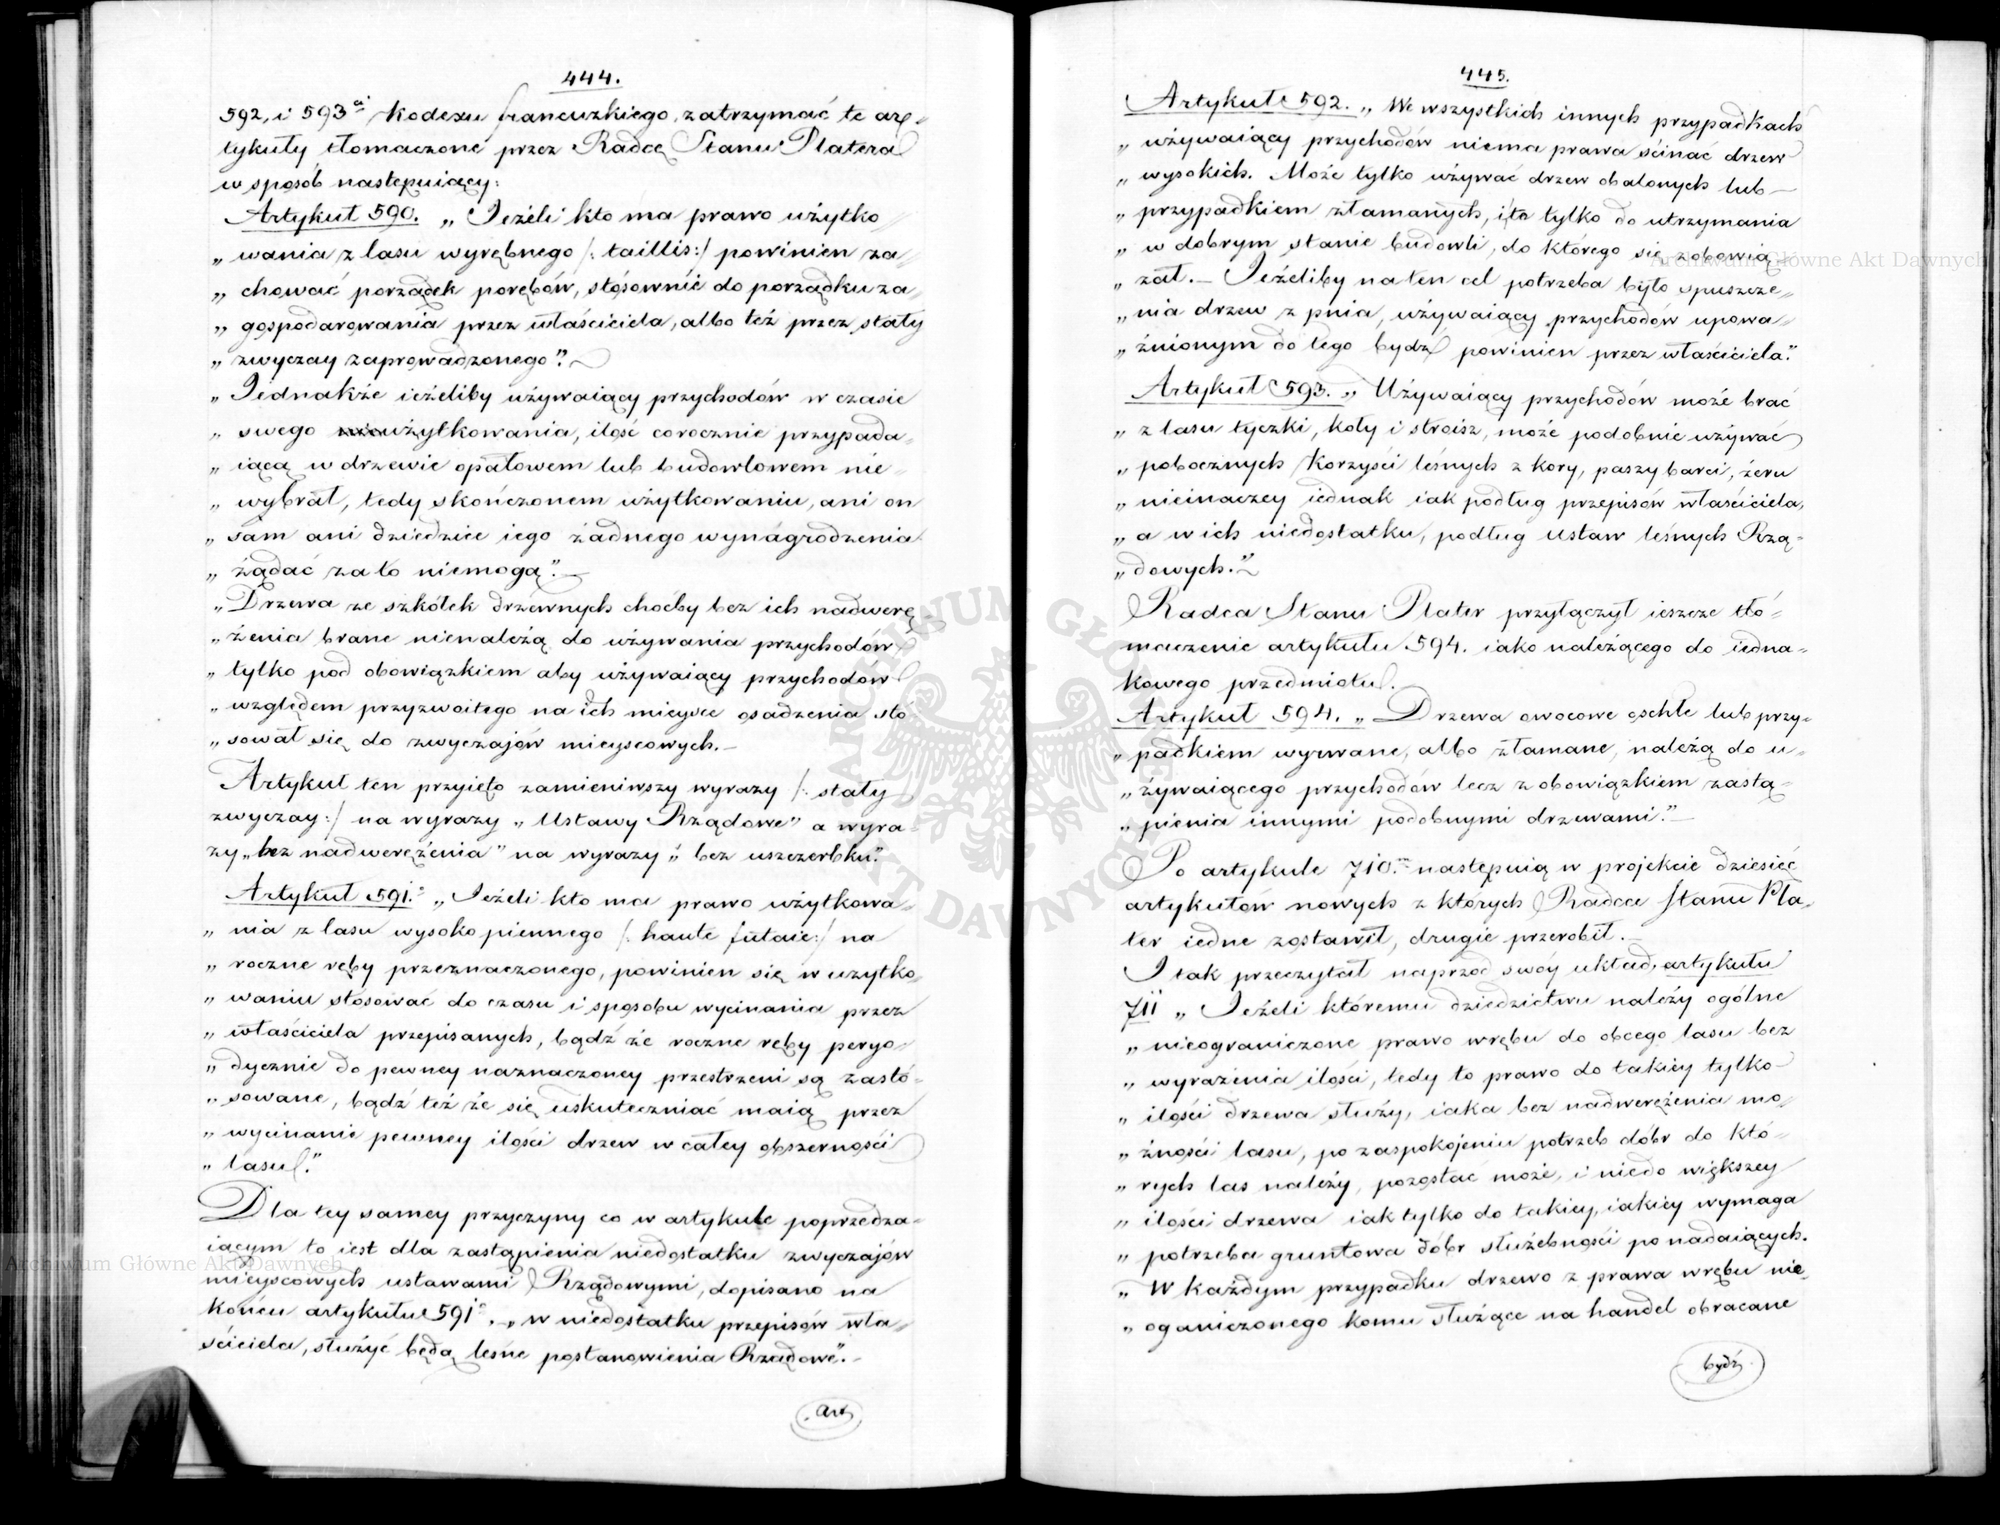 444.
592, i 593ci Kodexu francuzkiego, zatrzymać te ar-
tykuły tłomaczone przez Radcę Stanu Platera
w sposób następuiący:
Artykuł 590. „Jeżeli kto ma prawo użytko-
„wania z lasu wyrębnego /: taillis :/ powinien za-
„chować porządek porębów, stósownie do porządku za-
„gospodarowania przez właściciela, albo też przez stały
„zwyczay zaprowadzonego”.
„Jednakże ieżeliby używaiący przychodów w czasie
„swego użytkowania, ilość corocznie przypada-
„iącą w drzewie opałowem lub budowlowem nie-
„wybrał, tedy skończonem użytkowaniu, ani on
„sam ani dziedzice iego żadnego wynagrodzenia
„żądać za to niemogą”.
„Drzewa ze szkółek drzewnych choćby bez ich nadwerę-
„żenia brane nienależą do używania przychodów
„tylko pod obowiązkiem aby używaiący przychodów
„względem przyzwoitego na ich mieysce osadzenia stó-
„sował się do zwyczajów mieyscowych.
Artykuł ten przyięto zamieniwszy wyrazy /: stały
zwyczay :/ na wyrazy „Ustawy Rządowe” a wyra-
zy „bez nadwerężenia” na wyrazy „bez uszczerbku”.
Artykuł 591. „Jeżeli kto ma prawo użytkowa-
„nia z lasu wysoko piennego /: haute futaie :/ na
„roczne ręby przeznaczonego, powinien się w użytko-
„waniu stósować do czasu i sposobu wycinania przez
„właściciela przepisanych, bądź że roczne ręby peryo-
„dycznie do pewney naznaczoney przestrzeni są zastó-
„sowane, bądź też że się uskuteczniać maią przez
„wycinanie pewney ilości drzew w całey obszerności
„lasu.”
Dla tey samey przyczyny co w artykule poprzedza-
iącym to iest dla zastąpienia niedostatku zwyczajów
mieyscowych ustawami Rządowymi, dopisano na
końcu artykułu 591o. „w niedostatku przepisów wła-
ściciela, służyć będą leśne postanowienia Rządowe”.
Art
445.
Artykuł 592. „We wszystkich innych przypadkach
„używaiący przychodów niema prawa ścinać drzew
„wysokich. Może tylko używać drzew obalonych lub
„przypadkiem złamanych, i to tylko do utrzymania
„w dobrym stanie budowli, do którego się zobowią-
„zał. – Jeżeliby na ten cel potrzeba było spuszcze-
„nia drzew z pnia, używaiący przychodów upowa-
„żnionym do tego bydź powinien przez właściciela”.
Artykuł 593. „Używaiący przychodów może brać
„z lasu tyczki, koły i stroisz, może podobnie używać
„pobocznych korzyści leśnych z kory, paszy barci, żeru
„nieinaczey iednak iak podług przepisów właściciela,
„a w ich niedostatku, podług ustaw leśnych Rzą-
„dowych.”
Radca Stanu Plater przyłączył ieszcze tło-
maczenie artykułu 594. iako należącego do iedna-
kowego przedmiotu.
Artykuł 594. „Drzewa owocowe oschłe lub przy-
„padkiem wyrwane, albo złamane, należą do u-
„żywaiącego przychodów lecz z obowiązkiem zastą-
„pienia innymi podobnymi drzewami”.
Po artykule 710m następuią w projekcie dziesięć
artykułów nowych z których Radca Stanu Pla-
ter iedne zostawił, drugie przerobił.
I tak przeczytał naprzód swóy układ, artykułu
711 „Jeżeli któremu dziedzictwu należy ogólne
„nieograniczone prawo wrębu do obcego lasu bez
„wyrażenia ilości, tedy to prawo do takiey tylko
„ilości drzewa służy, iaka bez nadwerężenia mo-
„żności lasu, po zaspokojeniu potrzeb dóbr do któ-
„rych las należy, pozostać może, i nie do większey
„ilości drzewa iak tylko do takiey, iakiey wymaga
„potrzeba gruntowa dóbr służebności ponadaiących.
„W każdym przypadku drzewo z prawa wrębu nie-
„oganiczonego komu służące na handel obracane
bydź